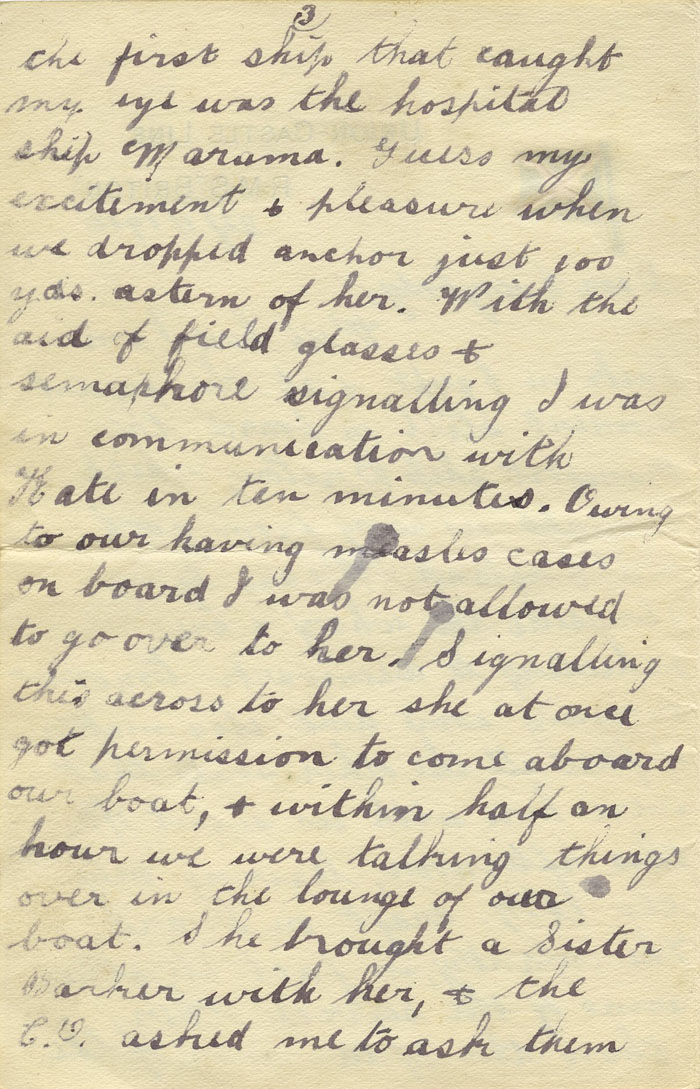 3
the first ship that caught
my eye was the hospital
ship Marama. Guess my
excitement & pleasure when
we dropped anchor just 100
yds. astern of her. With the
aid of field glasses &
semaphore signalling I was
in communication with
Kate in ten minutes. Owing
to our having measles cases
on board I was not allowed
to go over to her. Signalling
this across to her she at once
got permission to come aboard
our boat, & within half an
hour we were talking things
over in the lounge of our
boat. She brought a Sister
Barker with her, & the
C.O. asked me to ask them